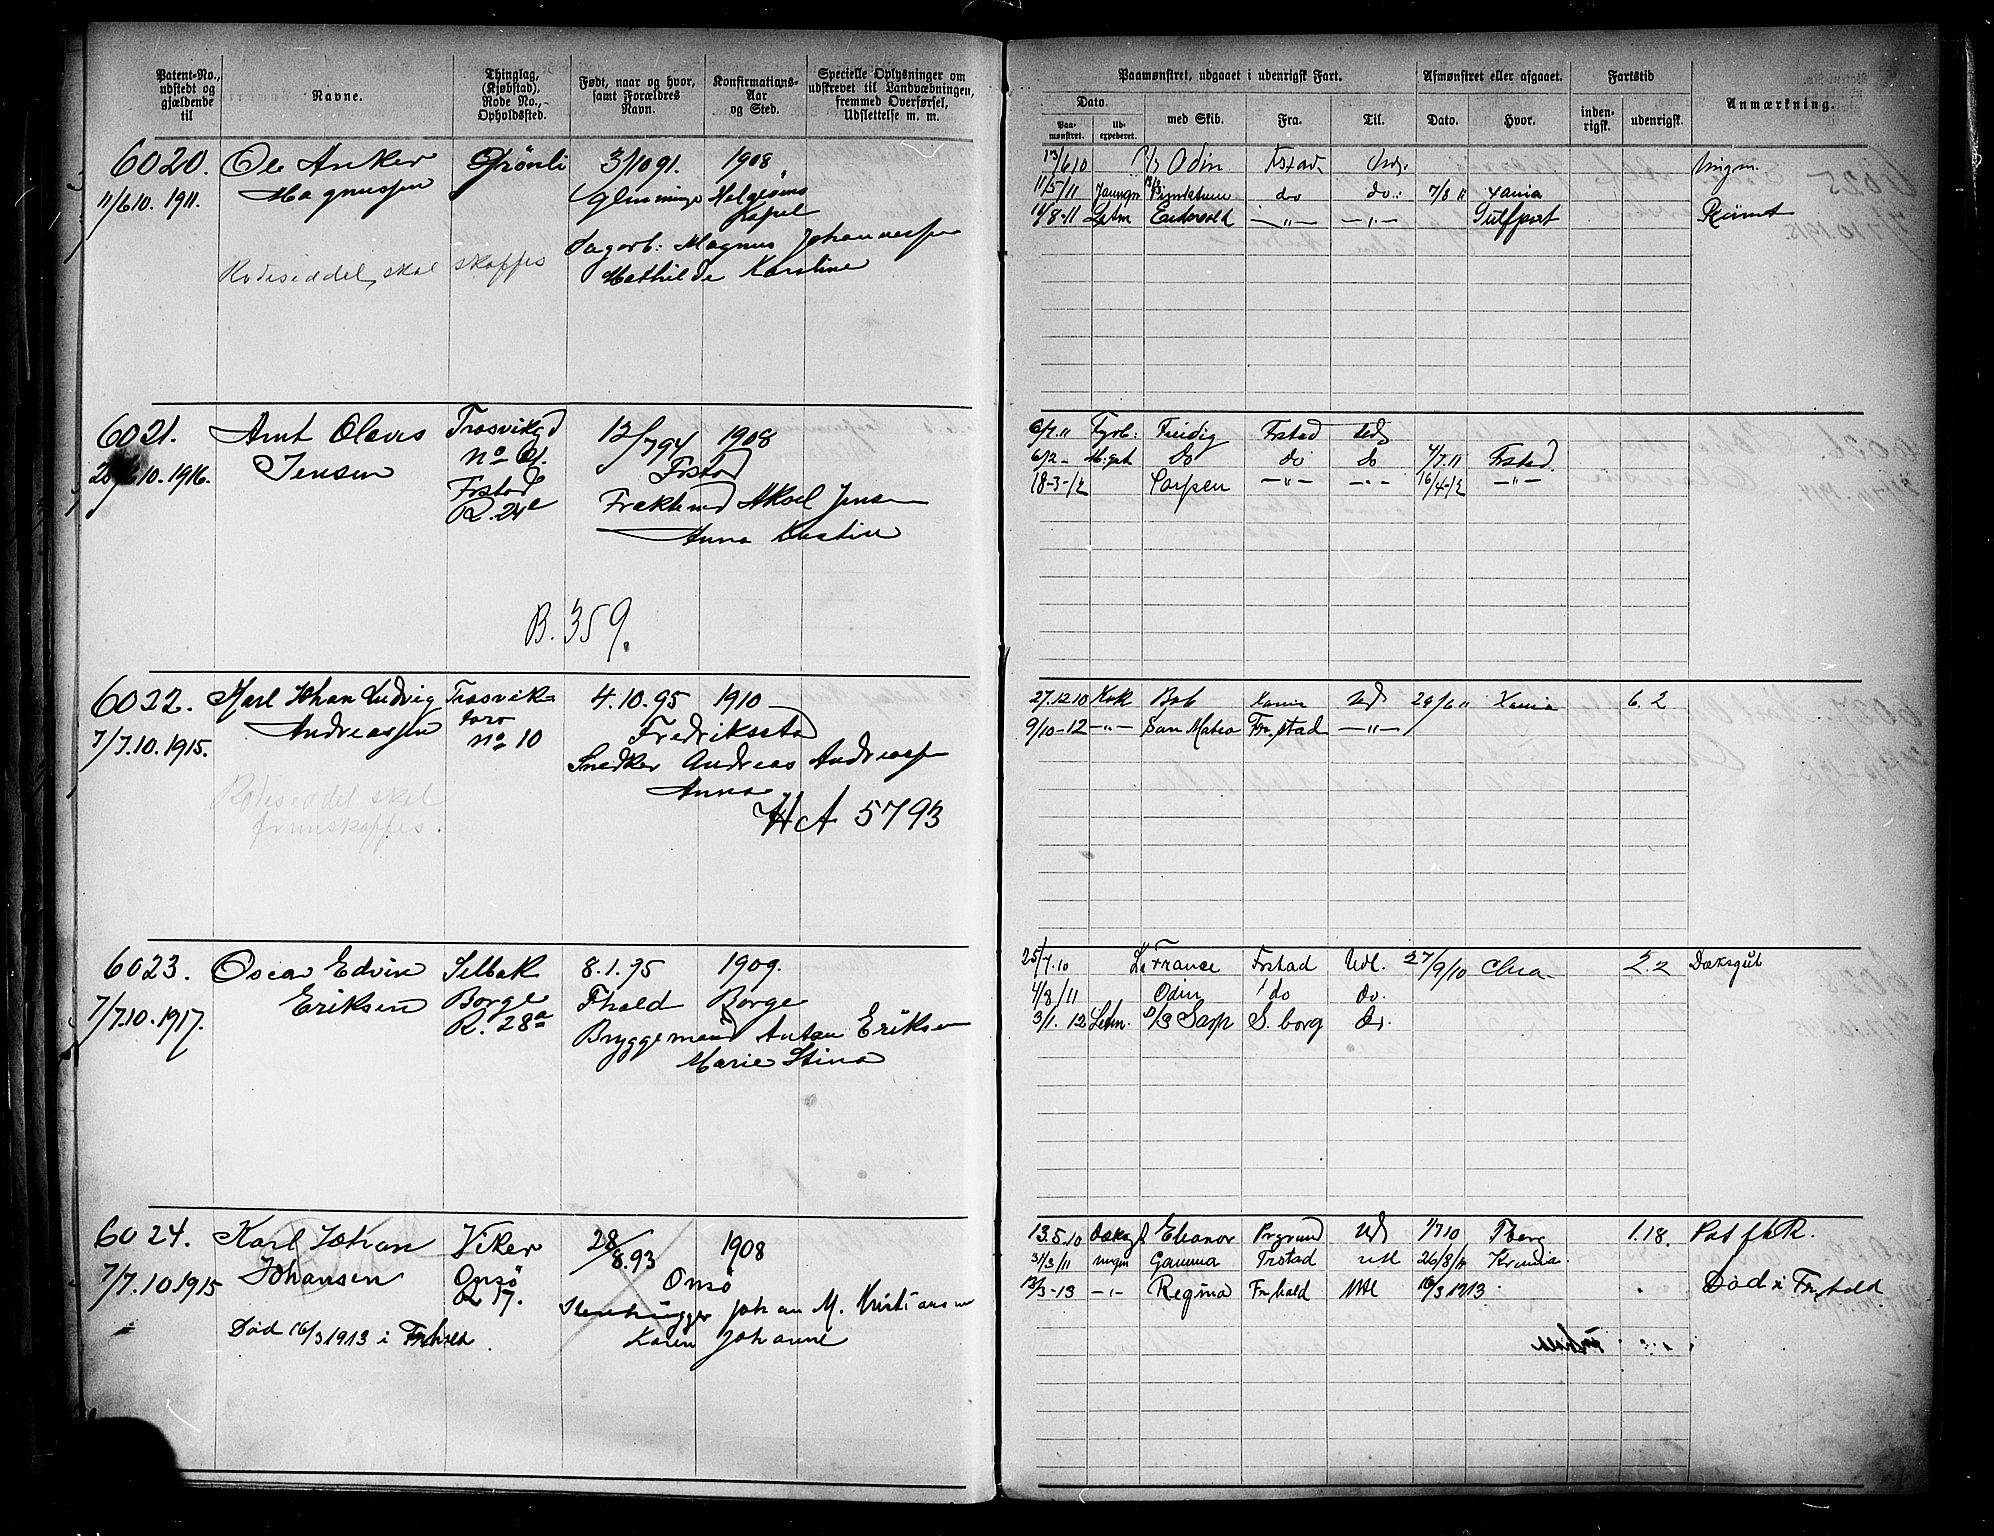 Patent-No., udstedt og gjældende til
Navne.
Thinglag, (Kjøbstad), Rode No., Opholdssted.
Født, naar og hvor, samt Forældres Navn.
Konfirmations-Aar og Sted.
Specielle Oplysninger om udskrevet til Landværbningen, fremmed Overførsel, Udslettelse m. m.
Paamønstret, udgaaet i udenrigsk Fart.
Afmønstret eller afgaaet.
Fartstid
Anmærkning.
Dato.
Paamønstret.
Udexpederet.
med Skib.
Fra.
Til.
Dato.
Hvor.
indenrigsk.
udenrigsk.
6020. Ole Anker Grönli 3/10 91. 1908
11/6 10. 1911. Magnussen Glemminge
Dagarb: Magnus Johannessen
Rodeseddel skal skaffes
Mathilde Karoline
13/6 10 Odin Fstad
11/5 11 do do 7/8 11 Xania
11/8-11 Letm —"— —"— Gulfport Römt
6021. Arnt Olavs Trosvikgd 12/7 94 1908
Jensen No 21. Fstad
6 10. 1916.
Frstad
R. 24e
Axel Jensen
Anna
B. 359.
6/2 11 Fyrb: Freidig Frstad Udl
6/2 - do do do 4/7.11 Frstad
18-3-12 Sarpen —"— —"— 16/4-12 —"—
6022. Karl Johan Ludvig Trosvik 4.10.95 1910
Andreassen No 10 Fredriksstad
7/7.10.1915.
Snedker Andreas Andreassen
Anna
Rodeseddel skal
HA 5793
27.12.10 Kok Bob Xania Ud 29/6 11 Xania 6. 2
9/10-12 —"— San Mateo Fr.stad —"—
6023. Oscar Edvin Selbak 8.1.95 1909.
Eriksen Borge Fhald Borge
7/7.10.1917. R. 28a
Bryggemand Anton Eriksen
Marie Stina
25/7.10 La France Frstad Udl. 27/9/10 2.2 Dæksgut
4/8/11 Odin do do.
3/1. 12 Letm. D/S Sarp S.borg do.
6024. Karl Johan Viker 28/8.93 1908
Johansen Onsö Onsö
7/7.10 1915 R 17.
Stenhugger Johan M. Kristiansen
Karen Johanne
Död 16/3 1913 i Fr.hald.
13.5.10 Eleanor Ud 1/7 10 1.18.
31/3/11 Gamma Frstad ud 26/8/11
13/3-13 —"— Regina Fr.hald Udl 16/3 1913 Död i Fr.hald